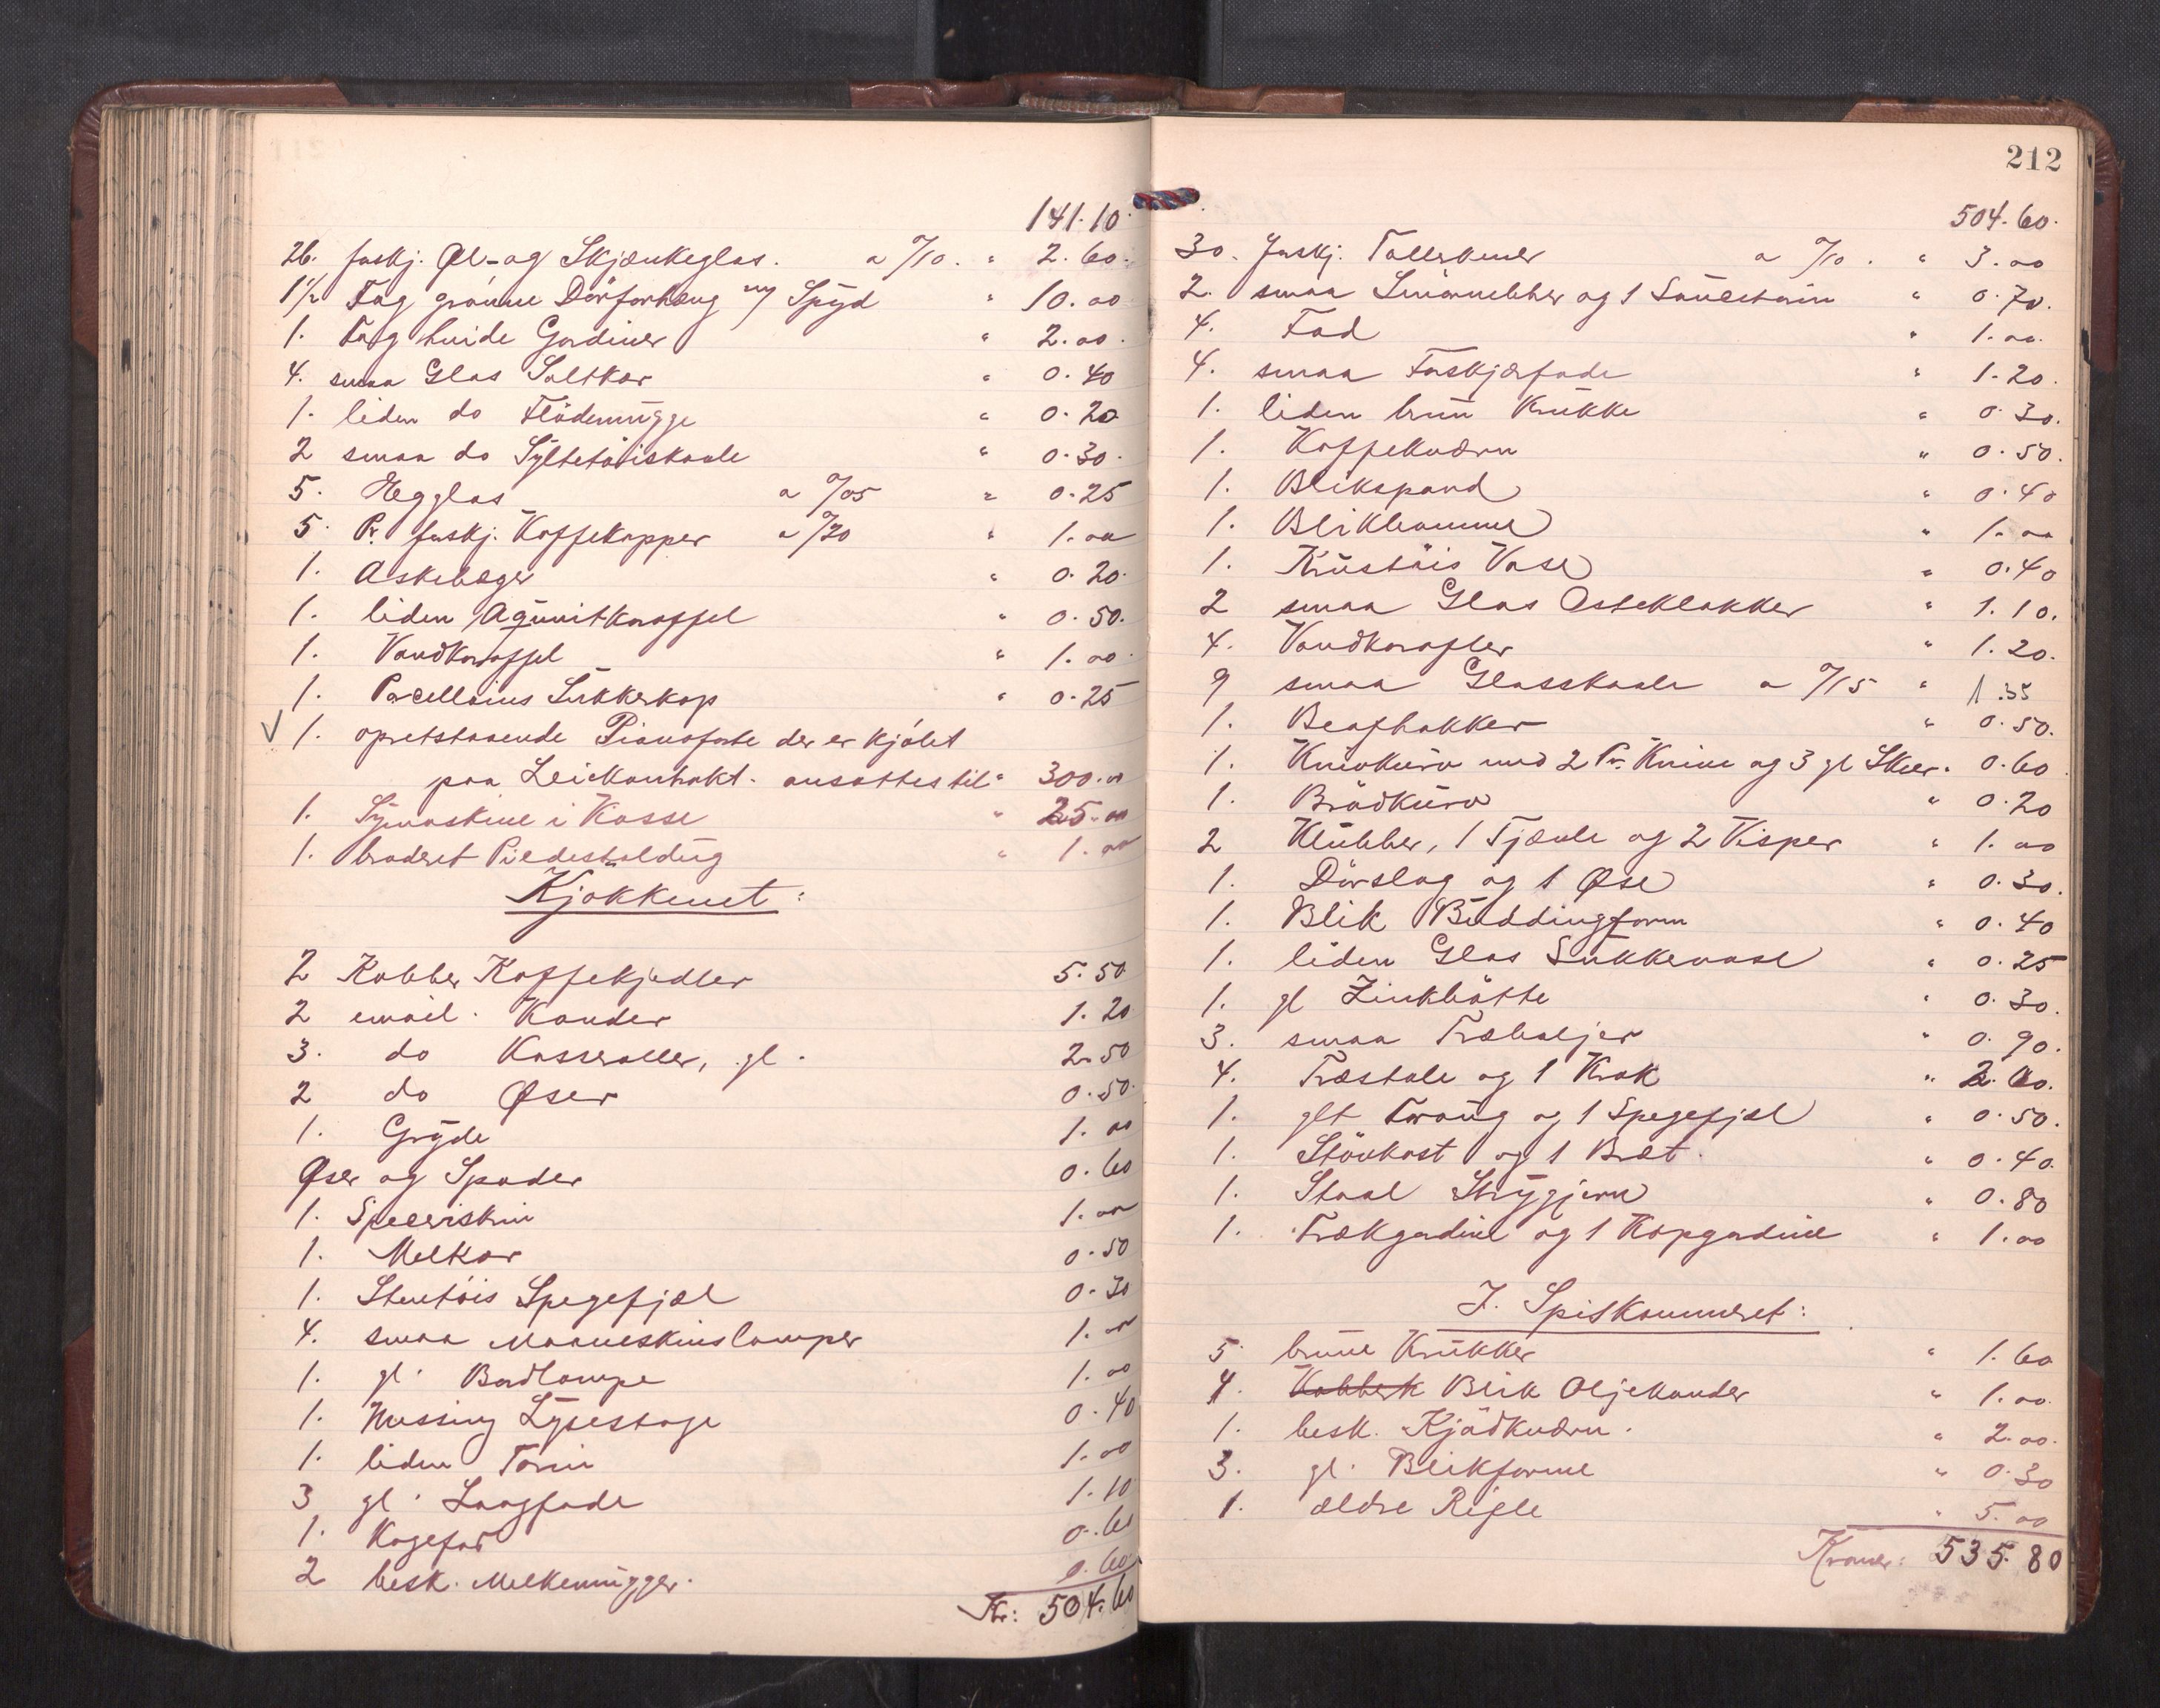 141.10.
26. forskj. Øl- og Skjænkeglas. a %10. " 2.60.
1½ Fag grønne Dörforhæng m/ Spyd " 10.00
1. Fag hvide Gardiner " 2.00.
4. smaa Glas Saltkar " 0.40
1. liden do Flödemügge " 0.20
2 smaa do Syltetöiskaale " 0.30.
5. Hegglas a %05 " 0.25
5. Pr. forskj. Kaffekopper a %20 " 1.00
1. Askebæger " 0.20.
1. liden Aqüavitkaraffel " 0.50.
1. Vandkaraffel " 1.00.
1. Porcellæins Sükkerkop " 0.25
√ 1. opretstaaende Pianoforte der er kjöbt
paa Leiekontrakt. ansattes til " 300.00
1. Symaskine i Kasse " 25.00
1. broderet Piedestaldüg " 1.00
Kjökkenet:
2 Kobber Kaffekjedler 5.50
2 email. Kander 1.20
3. do Kasseroller, gl. 2.50
2 do Øser 0.50.
1. Gryde 1.00
Øser og Spader 0.60
1. 1.00
1. Melkar 0.50
1. Stentöis Spegefjæl 0.30
4. smaa Maaneskinslamper 1.00
1. gl. Bordlampe 1.00
1. Messing Lysestage 0.40
1. liden Terrin 1.00
3 gl. Langfade 1.10
1. Kagefad 0.60
2 besk. Melkemügger. 0.60
Kr: 504.60
212
504.60.
30. forskj. Tallerkener a %10. " 3.00
2. smaa Smörnebber og 1 Saüceterin " 0.70.
4. Fad " 1.00.
4. smaa Forskjærfade " 1.20.
1. liden brün Krükke " 0.30.
1. Kaffekværn " 0.50.
1. Blikspand " 0.40
1. Blikkanne " 1.00
1. Krüstöis Vase " 0.40
2 smaa Glas Osteklokker " 1.10.
4. Vandkarafler " 1.20.
9 smaa Glasskaale a %15 " 1.35
1. Beafhakker " 0.50.
1. Knivkürv med 2 Pr. Knive og 3 gl Skeer. 0.60.
1. Brödkürv " 0.20
2 Klübber, 1 Fjæle og 2 Visper " 1.00
1. Dörslag og 1 Øse " 0.30.
1. Blik Büddingform " 0.40
1. liden Glas Sükkervase " 0.25
1. gl Zinkbötte " 0.30.
3. smaa Træbaljer " 0.90.
4. Træstole og 1 Krak " 2.00.
1. glt Traüg og 1 Spegefjæl " 0.50.
1. Stövkost og 1 Bræt. " 0.40.
1. Staal Strygjern " 0.80
1. Trækgardine og 1 Kapgardine " 1.00
I. Spiskammeret:
5 brüne Krükker " 1.60
4. Blik Oljekander " 1.00.
1. besk. Kjödkværn. " 2.00.
3. gl. Blikforme " 0.30
1. ældre Rifle " 5.00
Kroner: 535.80